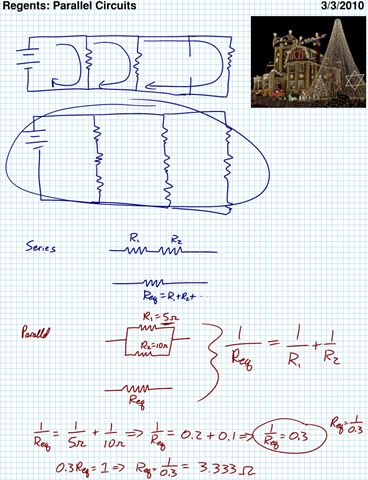 Regents: Parallel Circuits 3/3/2010
Series
R₁ R₂
Req = R₁+R₂+ ...
Parallel
R₁ = 5Ω
R₂=10Ω
Req
1/Req = 1/R₁ + 1/R₂
1/Req = 1/5Ω + 1/10Ω ⇒ 1/Req = 0.2 + 0.1 ⇒ 1/Req = 0.3 Req = 1/0.3
0.3 Req = 1 ⇒ Req = 1/0.3 = 3.333 Ω